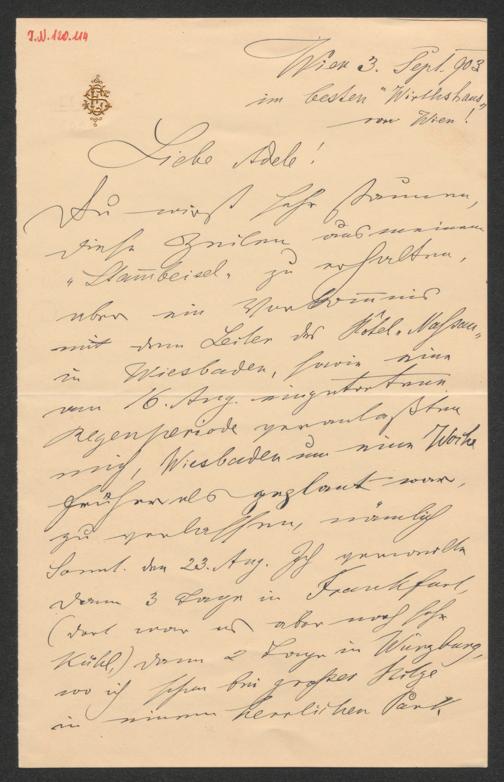 J.N. 120.114
Wien 3. Sept. 903
im besten "Wirthshaus"
von Wien!
Liebe Adele!
Du wirst sehr staunen,
diese Zeilen aus meinem
"Stammbeisel" zu erhalten,
aber ein Vorkommnis
mit dem Leiter des Hôtel "Nassau"
in Wiesbaden, sowie eine
am 16. Aug. eingetretene
Regenperiode veranlaßten
mich, Wiesbaden um eine Woche
früher als geplant war,
zu verlassen, nämlich
Sonnt. den 23. Aug. Ich verweilte
dann 3 Tage in Frankfurt,
(dort war es aber noch sehr
kühl,) dann 2 Tage in Würzburg,
wo ich schon bei großer Hitze
in einem herrlichen Park